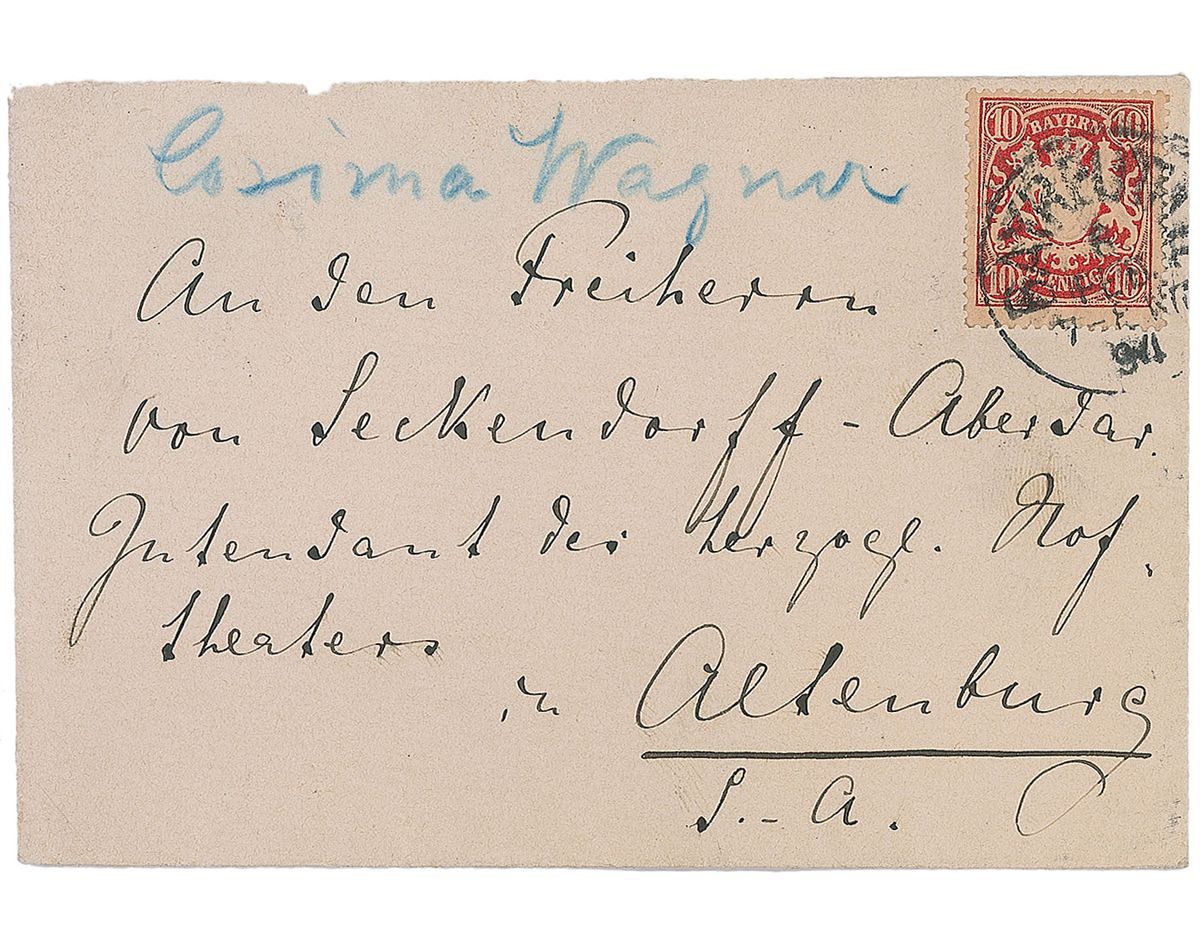 Cosima Wagner
10 BAYERN 10
10 PFENNIG 10
BAYREUTH
94
An den Freiherrn
von Seckendorff - Aberdar.
Intendant des herzogl. Hof.
theaters
in Altenburg
S.-A.